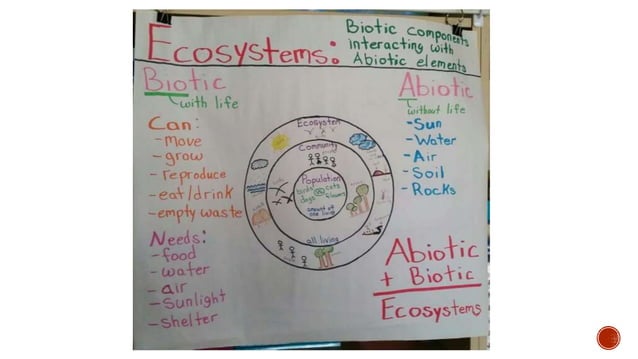 Ecosystems:
Biotic components
interacting with
Abiotic elements
Biotic
with life
Can:
-move
-grow
-reproduce
-eat/drink
-empty waste
Needs:
-food
-water
-air
-Sunlight
-Shelter
Ecosystem
Community
Population
birds cats
dogs flowers
amount of
one living
all living
Abiotic
without life
-Sun
-Water
-Air
-Soil
-Rocks
Abiotic
+ Biotic
Ecosystems